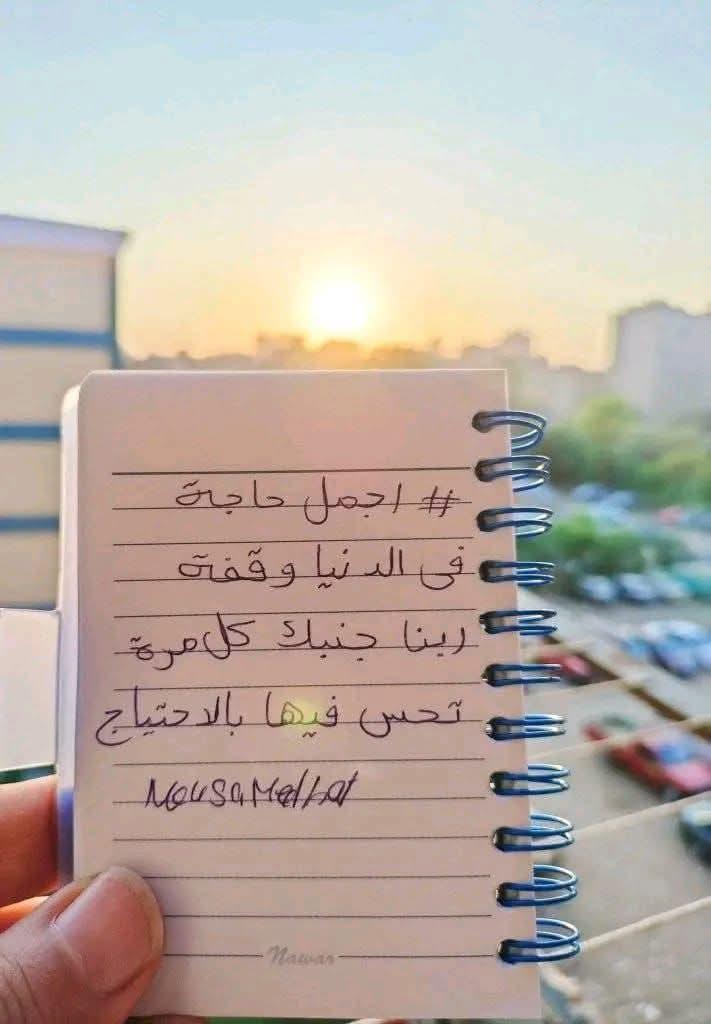 # اجمل حاجة
فى الدنيا وقفة
ربنا جنبك كل مرة
تحس فيها بالاحتياج
Nawar